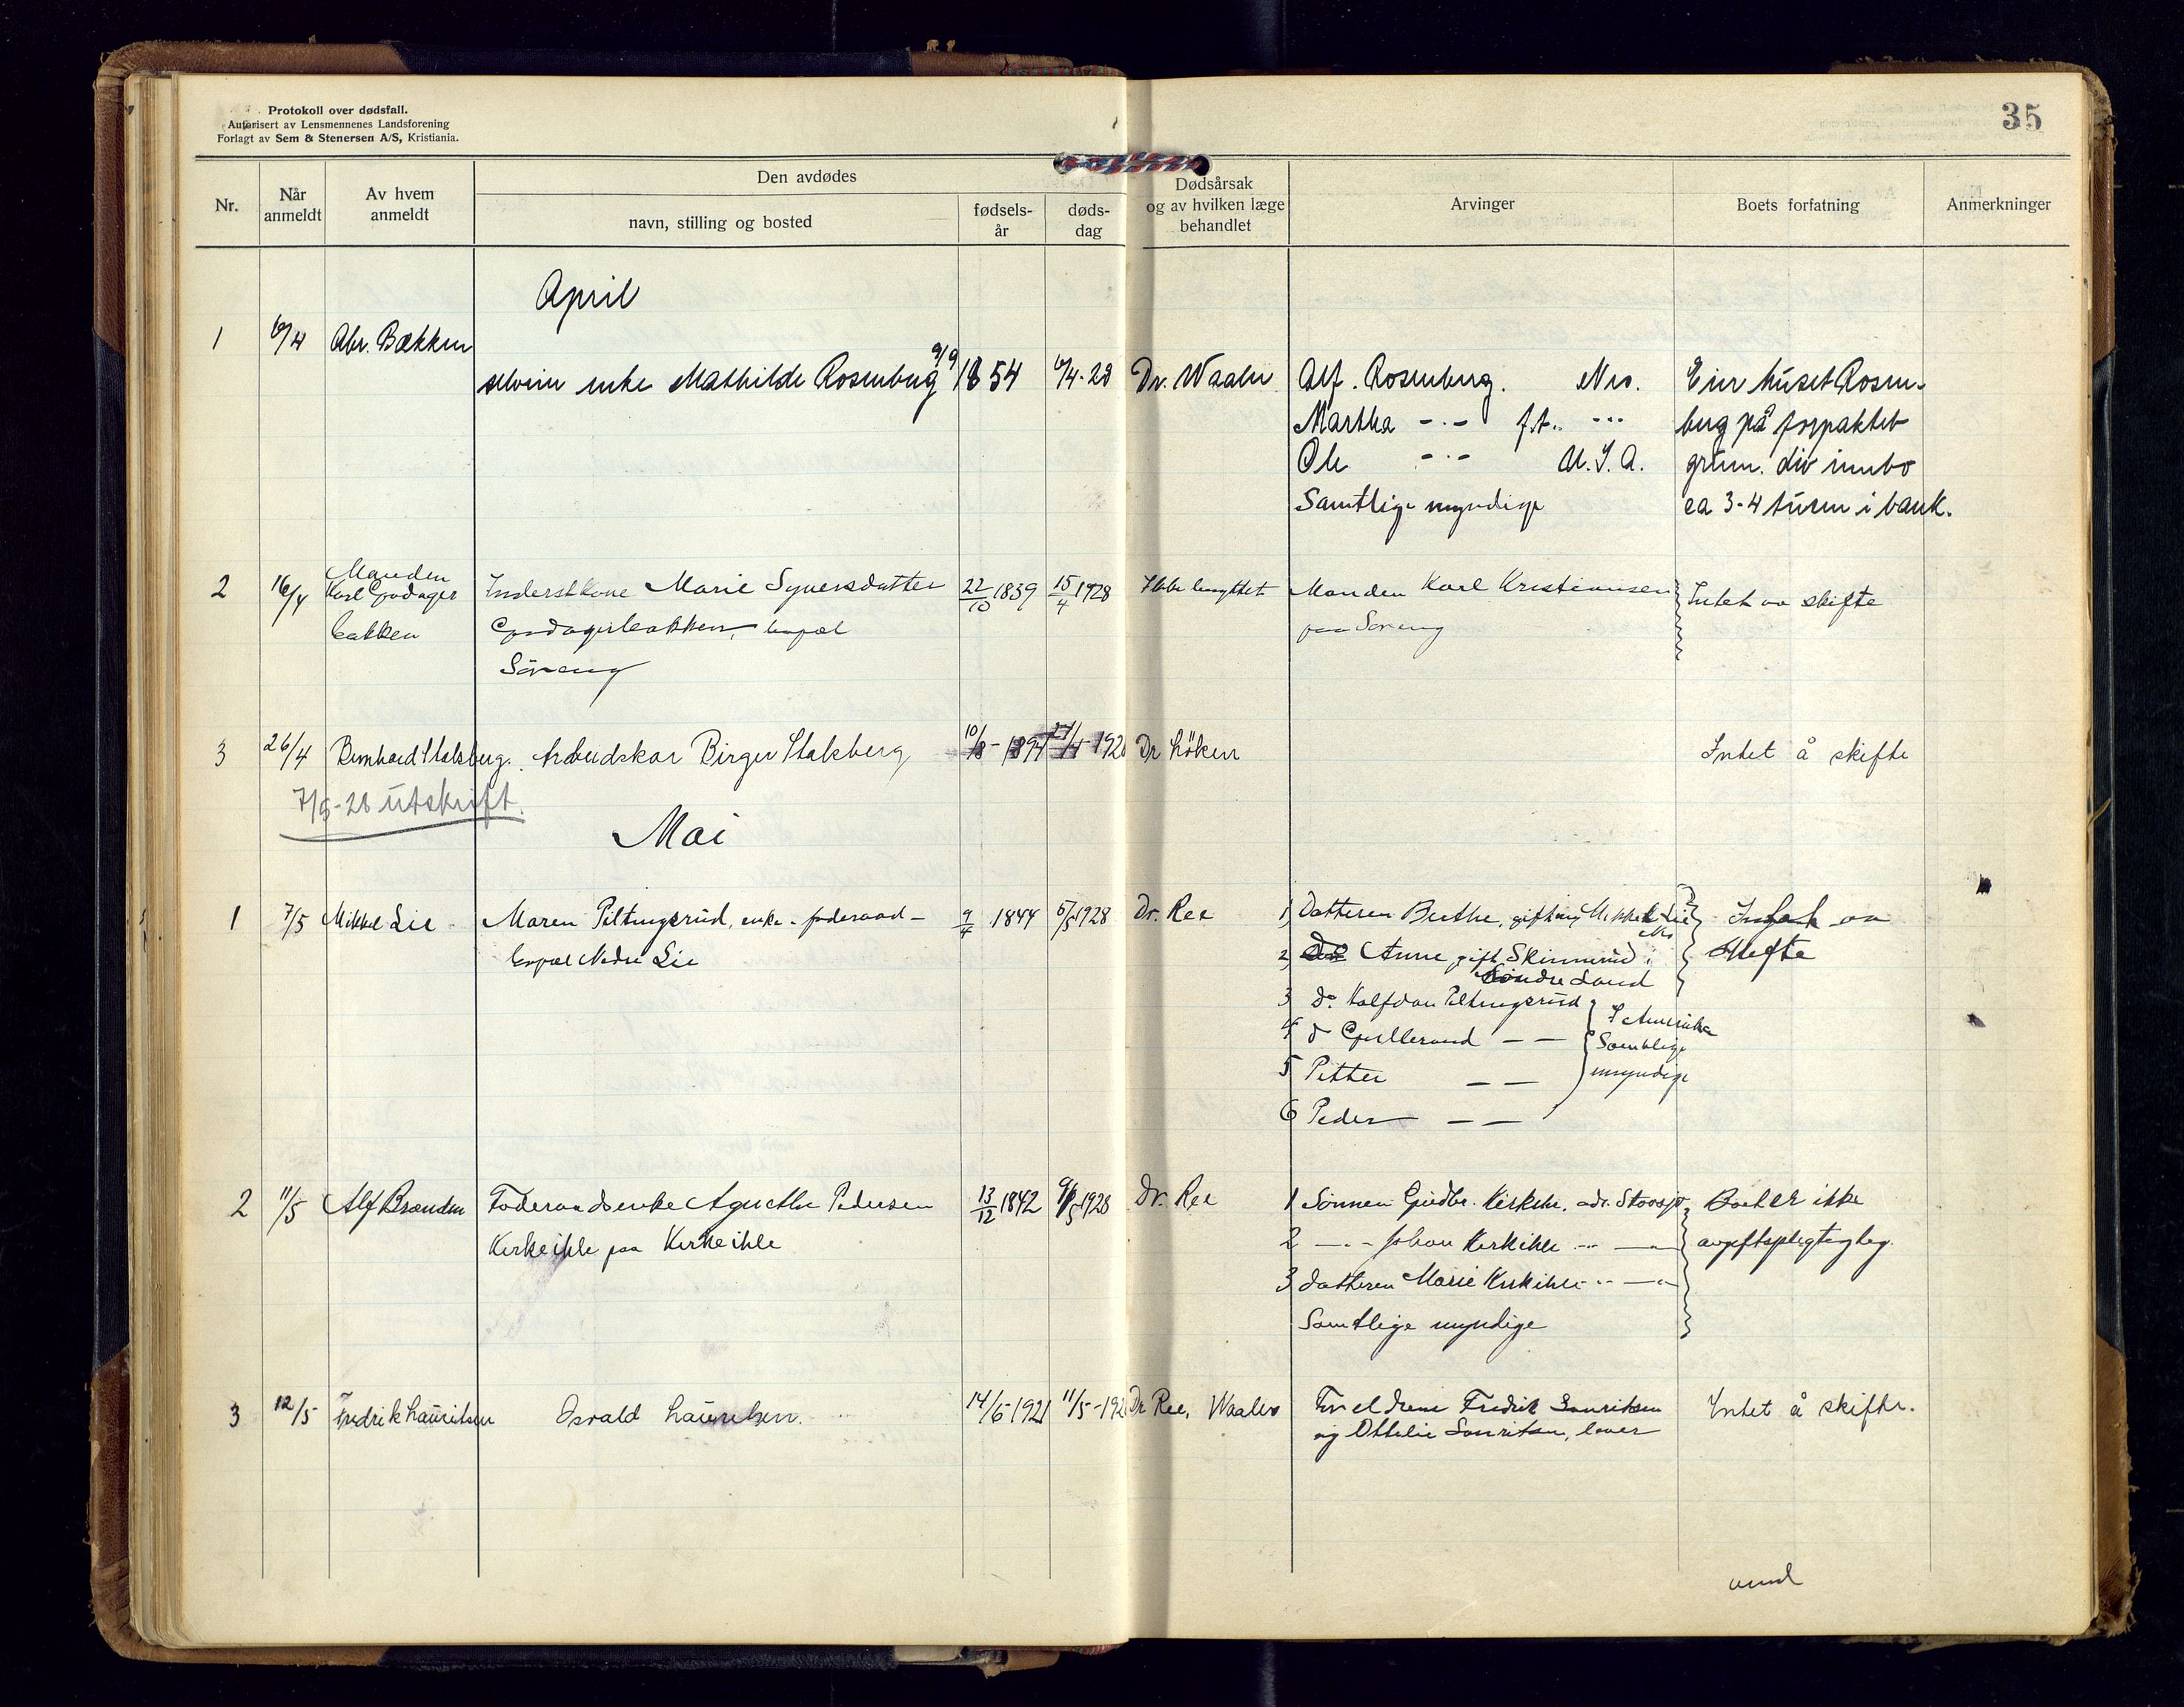 Protokoll over dødsfall.
Autorisert av Lensmennenes Landsforening
Forlagt av Sem & Stenersen A/S, Kristiania.
35
Nr.
Når anmeldt
Av hvem anmeldt
Den avdødes
navn, stilling og bosted
fødsels-år
døds-dag
Dødsårsak og av hvilken læge behandlet
Arvinger
Boets forfatning
Anmerkninger
April
1 Abr. Bækken
enke Mathilde Rosenberg 9/9 1854 /4-28 Dr. Waaler
Alf. Rosenberg. Nes.
Martha -.- f.t.. -..
Ole -.- U.S.A.
Samtlige myndige
Eier huset Rosen-
berg på forpaktet
grunn. div innbo
ca 3-4 tusen i bank.
2 16/4 Manden
Karl
bakken
Inderstkone Marie Syversdatter 22/10 1839 15/4 1928 Ikke benyttet
Søreng
Manden Karl Kristiansen
paa Søreng
Intet aa skifte
3 26/4 Bernhard Stalsberg. Arbeidskar Birger Stalsberg, Dr Høken
Intet å skifte
7/5-28 utskrift.
Mai
1 7/5 Mikkel Lie Maren Piltingsrud, enke - føderaad - 9/4 1844 5/5 1928 Dr. Ree
Nedre Lie
1) Datteren Berthe, gift m/ Mikkel Lie Nes
2) Anne gift Skinnerud i
Søndre Land
3 do. Halfdan Piltingsrud
4 d Gulbrand — —
5 Petter — —
6 Peder — —
I Amerika
Samtlige
myndige
Intet aa
skifte
2 11/5 Alf Brænden Føderaadsenke Agnethe Pedersen 13/12 1842 9/5 1928 Dr. Ree
Kirkeihle paa Kirkeihle
1 Sønnen Gudbr. Kirkeihle. adr.
2 —.- Johan Kirkeihle -.- —"—
3 datteren Marie Kirkeihle -.- —"—
Samtlige myndige
Boet er ikke
avgiftspligtig
3 12/5 Fredrik Lauritsen Osvald Lauritsen. 14/6-1921 11/5-192 Dr Ree, Waaler
Foreldrene Fredrik Lauritsen
og Ottilie Lauritsen, lever
Intet å skifte.
vend